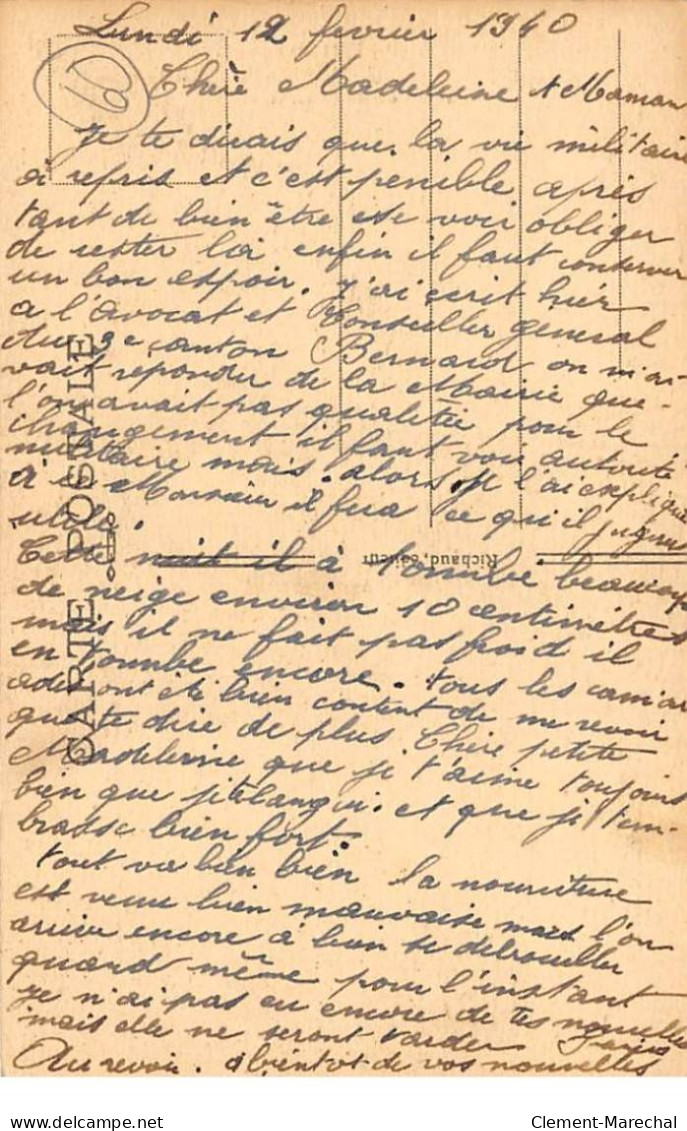 Lundi 12 fevrier 1940
Chère Madeleine & Maman
Je te dirais que la vie militaire
a repris et c'est penible après
tant de bien être et se voir obliger
de rester là enfin il faut conserver
un bon espoir. J'ai écrit hier
a l'avocat et Conseiller general
du 3e canton Bernard on m'a-
vait repondu de la Mairie que
l'on avait pas qualitée pour le
changement il faut voir autorité
militaire mais alors je l'ai expliqué
a ce Monsieur il fera ce qu'il jugera
utile.
Cette nuit il à tombé beaucoup
de neige environ 10 centimètres
mais il ne fait pas froid il
en tombe encore. tous les camar
ades ont été bien content de me revoir
que te dire de plus Chère petite
Madeleine que je t'aime toujours
bien que je
et que je t'em-
brasse bien fort.
tout va bien bien la nourriture
est venue bien mauvaise mais l'on
arrive encore à bien se debrouiller
quand même pour l'instant
Je n'ai pas eu encore de tes nouvelles
mais elle ne seront tarder
Au revoir. a bientot de vos nouvelles
CARTE POSTALE
Richaud, éditeur
Clement-Marechal